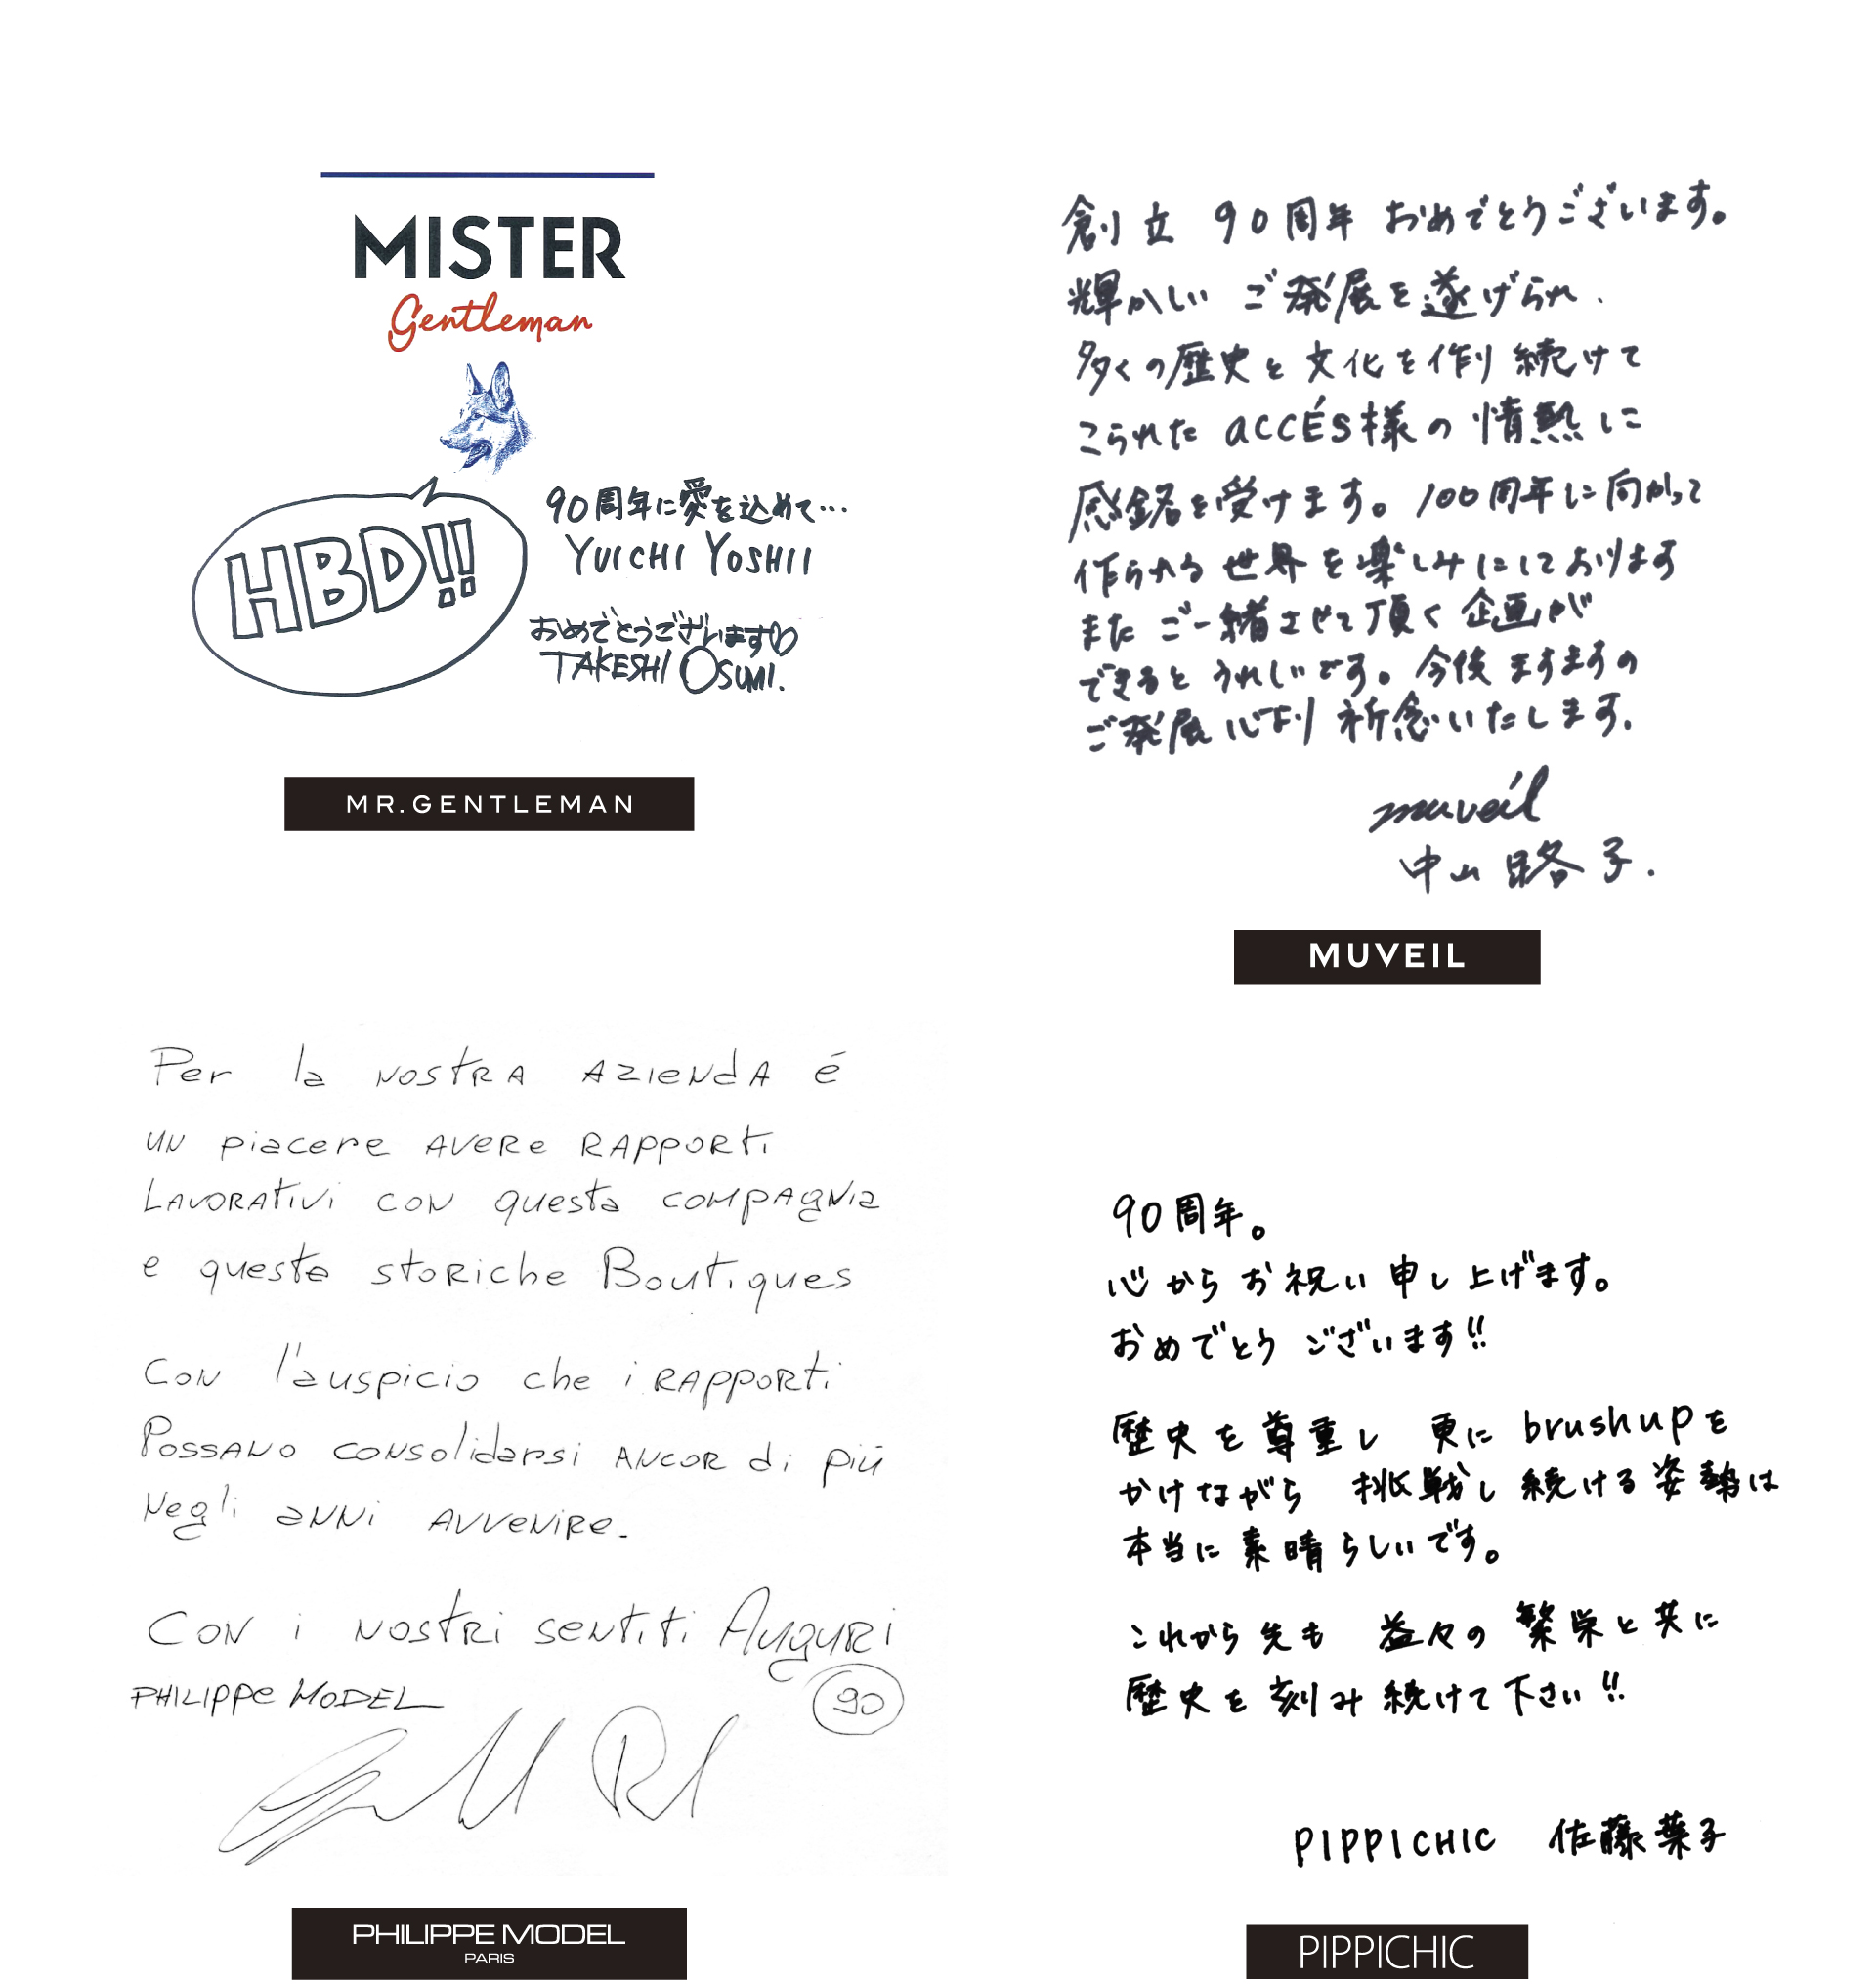 MISTER
Gentleman
HBD!!
90周年に愛を込めて…
YUICHI YOSHII
おめでとうございます♡
TAKESHI OSUMI.
MR.GENTLEMAN
創立 90周年 おめでとうございます。
輝かしい ご発展を遂げられ、
多くの歴史と文化を作り続けて
こられた aCCÉS様の情熱に
感銘を受けます。100周年に向かって
作られる世界を楽しみにしております
また ご一緒させて頂く企画が
できると うれしいです。今後ますますの
ご発展心より祈念いたします.
muveil
中山路子.
MUVEIL
Per la nostra azienda é
un piacere avere rapporti
lavorativi con questa compagnia
e queste storiche Boutiques
Con l'auspicio che i rapporti
possano consolidarsi ancor di piú
negli anni avvenire.
Con i nostri sentiti Auguri
PHILIPPE MODEL
90
PHILIPPE MODEL
PARIS
90周年。
心からお祝い申し上げます。
おめでとうございます!!
歴史を尊重し 更に brushupを
かけながら 挑戦し続ける姿勢は
本当に素晴らしいです。
これから先も 益々の繁栄と共に
歴史を刻み続けて下さい!!
PIPPICHIC 佐藤葉子
PIPPICHIC